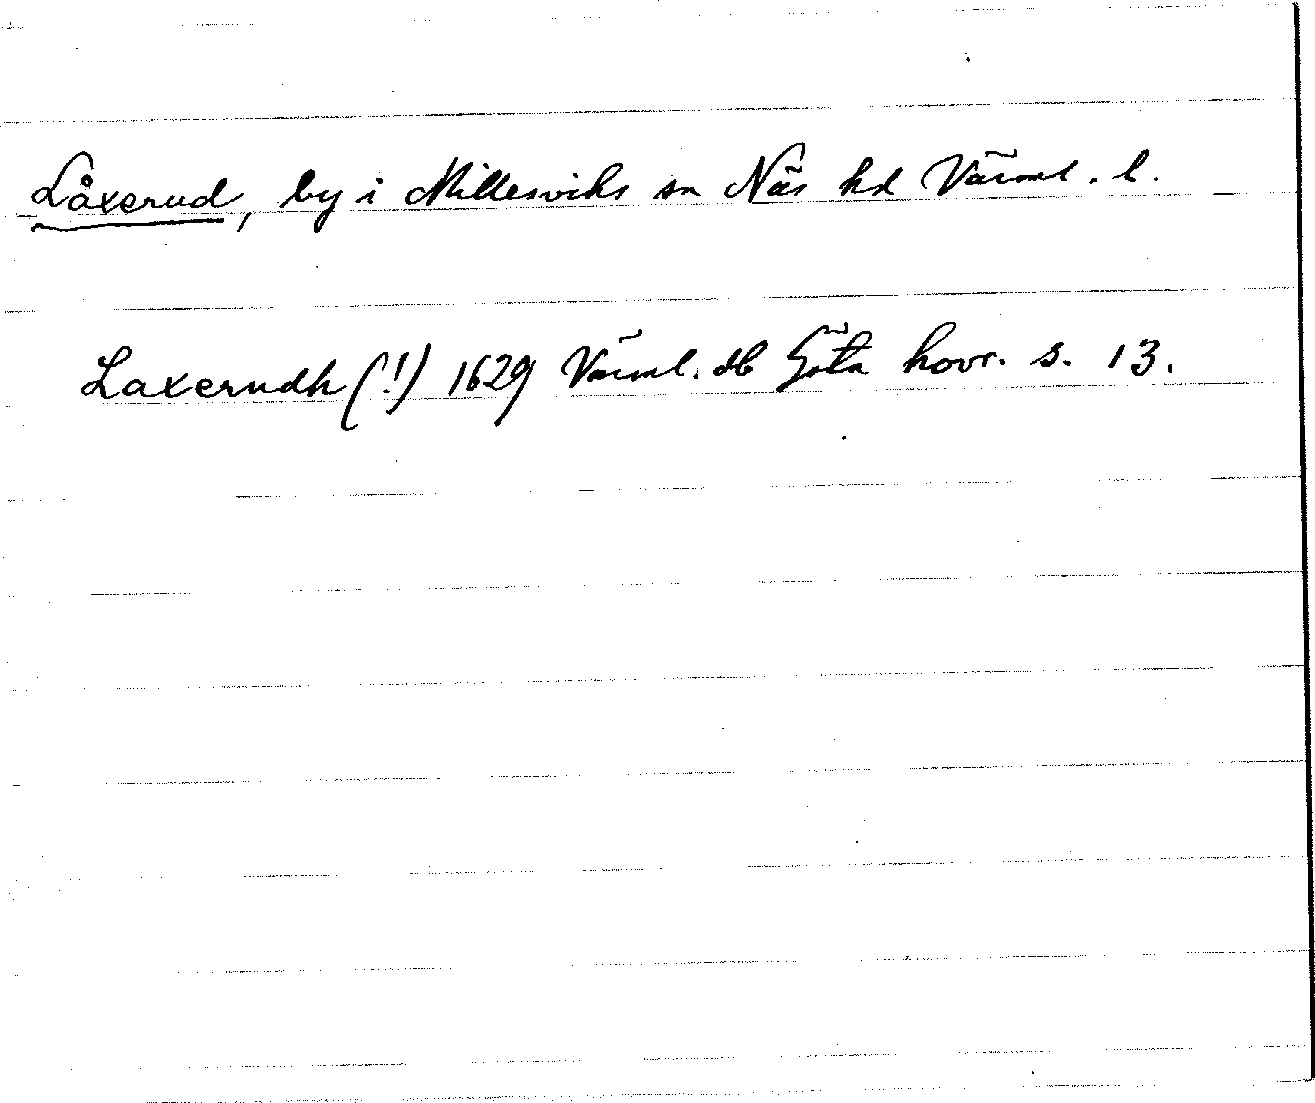 Låxerud, by i Millesviks sn Näs hd Värml. l.
Laxerudh (!) 1629 Värml. db Göta hovr. s. 13.